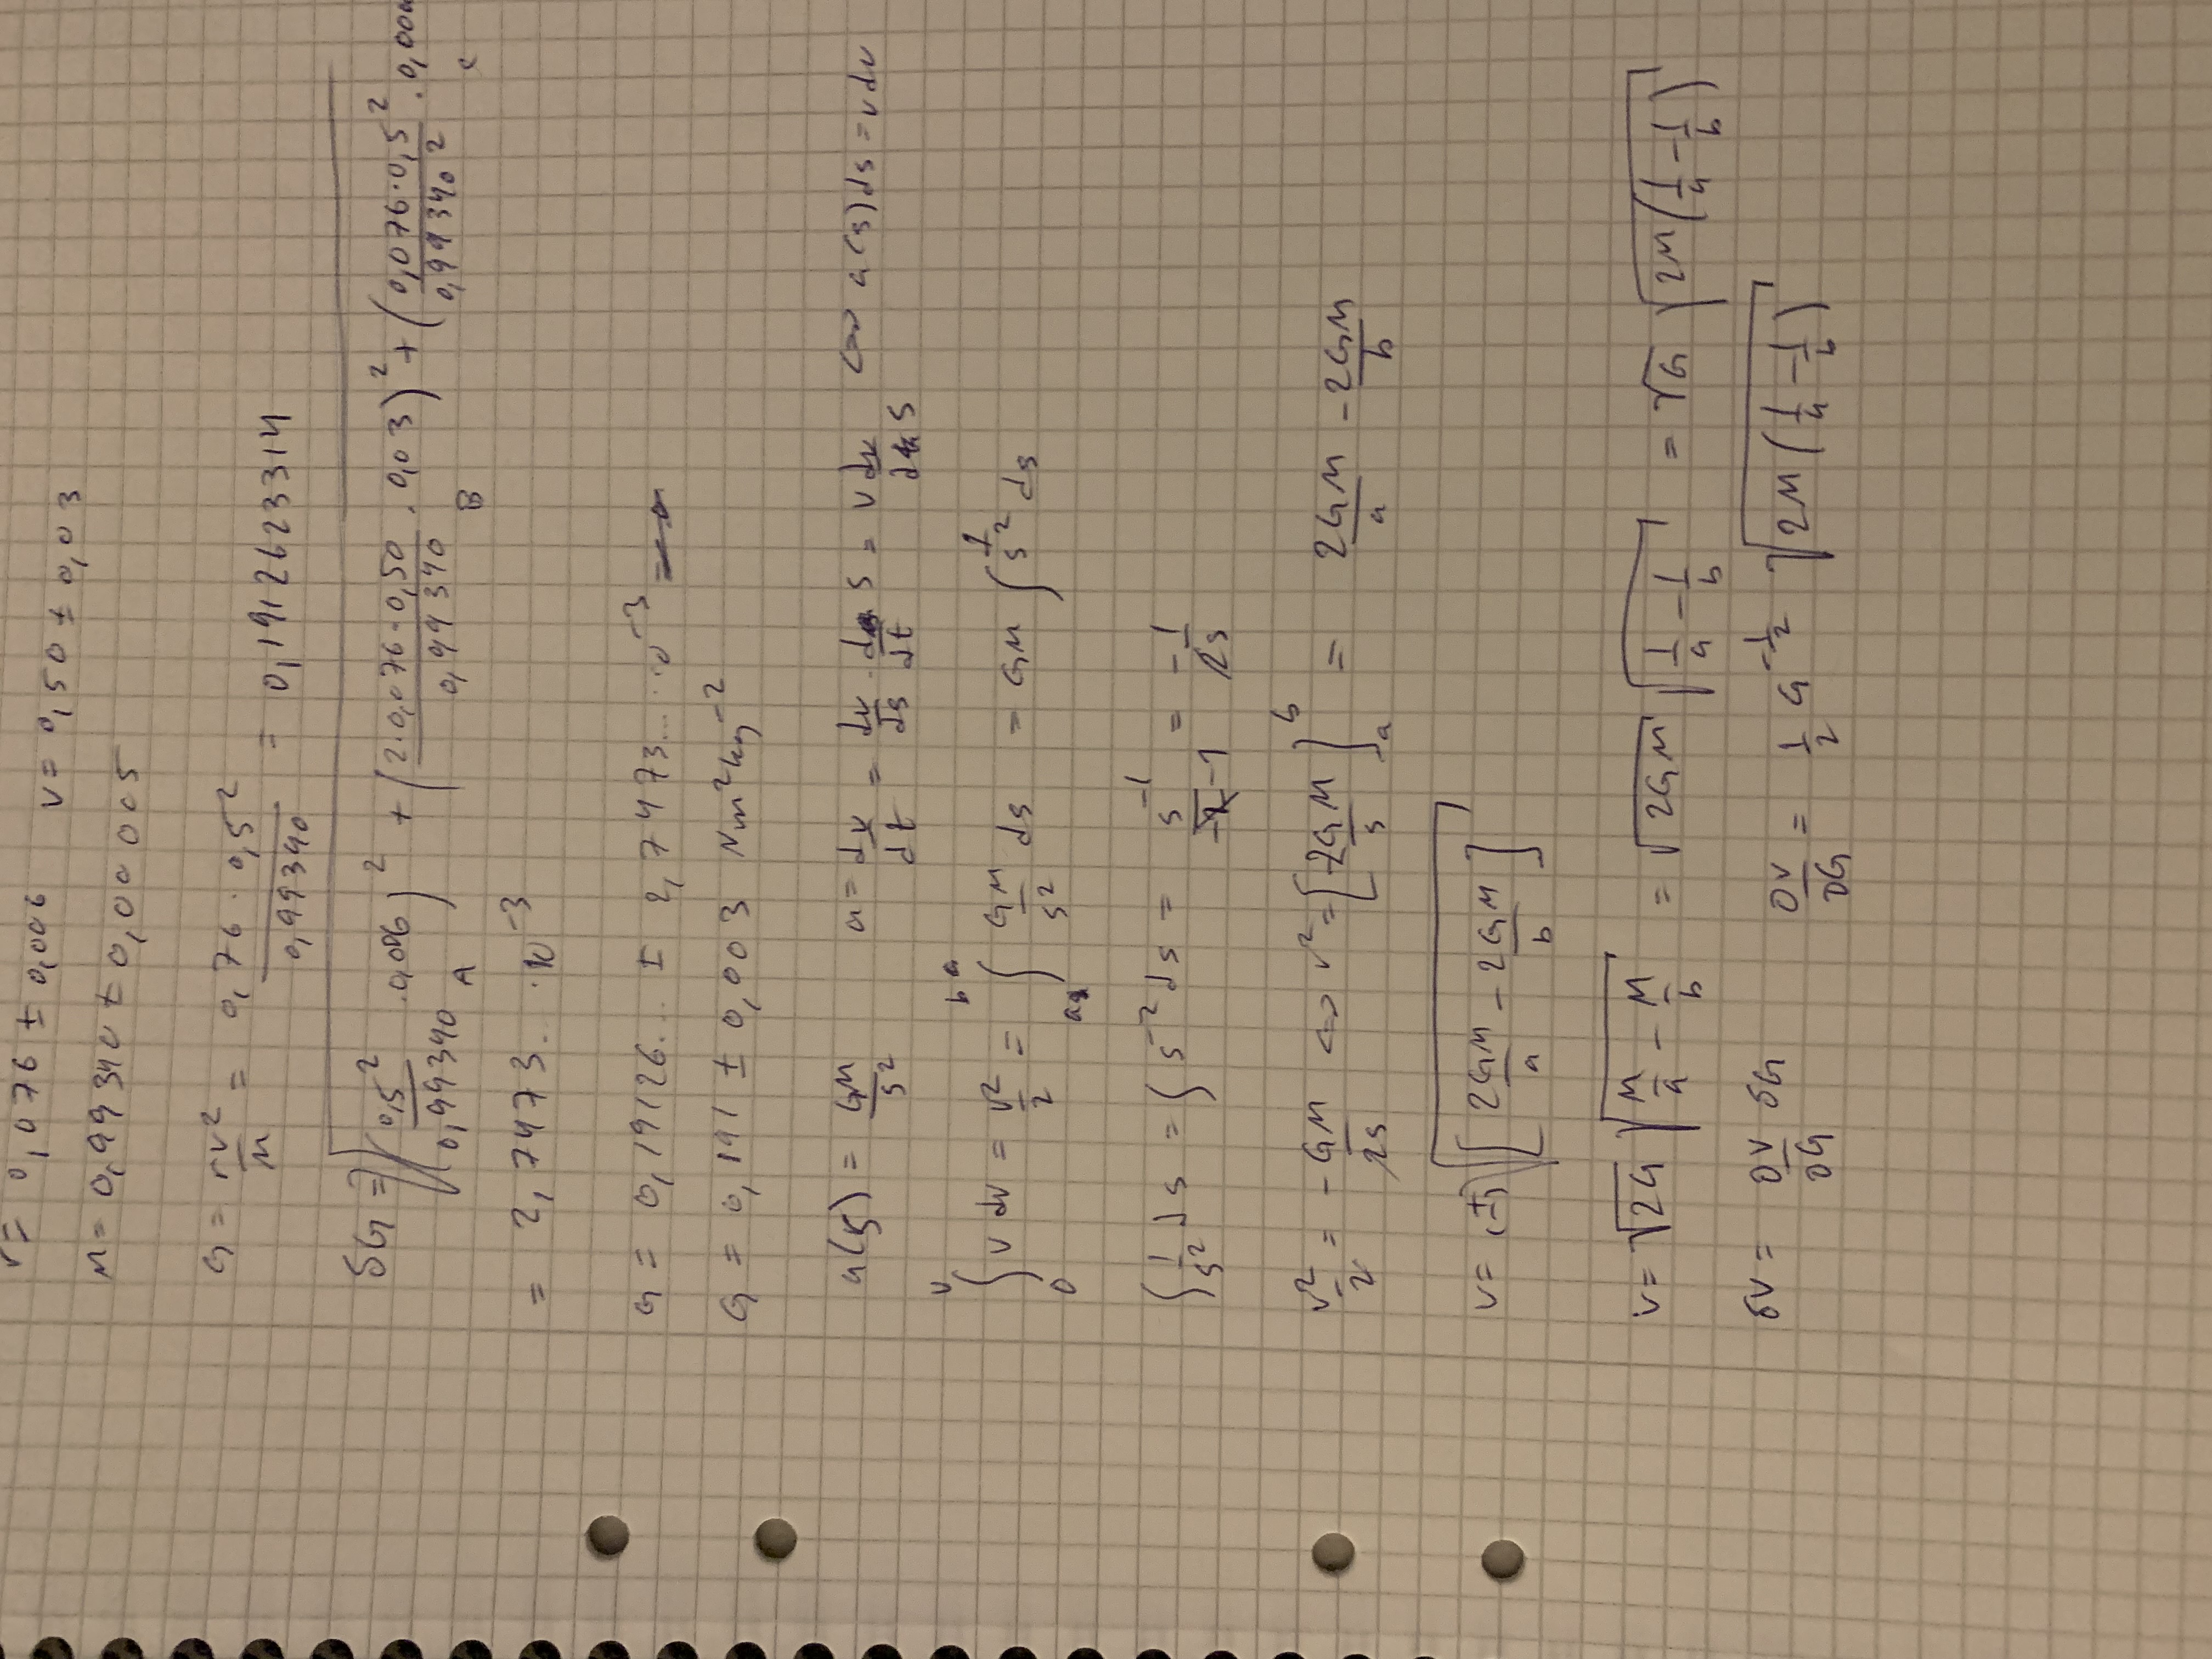 r = 0,076 ± 0,006   v = 0,50 ± 0,03
M = 0,99340 ± 0,00005
G = rv²/M = 0,76 · 0,5²/0,99340 = 0,1912623314
δG = √((0,5²/0,99340 · 0,006)² + (2·0,076·0,50/0,99340 · 0,03)² + (0,076·0,5²/0,99340² · 0,000
A B C
= 2,7473... · 10⁻³
G = 0,19126... ± 2,7473... · 10⁻³
G = 0,191 ± 0,003 Nm²kg⁻²
a(s) = GM/s²   a = dv/dt = dv/ds · ds/dt = v dv/ds ⇔ a(s)ds = v dv
∫₀ᵛ v dv = v²/2 = ∫ₐᵇ GM/s² ds = GM ∫ 1/s² ds
∫ 1/s² ds = ∫ s⁻² ds = s⁻¹/-1 = -1/s
v²/2 = -GM/s ⇔ v² = [-2GM/s]ₐᵇ = 2GM/a - 2GM/b
v = (±)√[2GM/a - 2GM/b]
v = √2G √(M/a - M/b) = √2GM √(1/a - 1/b) = √G √(2M(1/a - 1/b))
δv = ∂v/∂G δG   ∂v/∂G = 1/2 G^(-1/2) √(2M(1/a - 1/b))